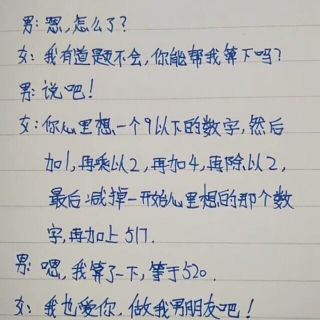 男:嗯,怎么了?
女:我有道题不会,你能帮我算下吗?
男:说吧!
女:你心里想一个9以下的数字,然后
加1,再乘以2,再加4,再除以2,
最后减掉一开始心里想的那个数
字,再加上517.
男:嗯,我算了一下,等于520.
女:我也爱你,做我男朋友吧!